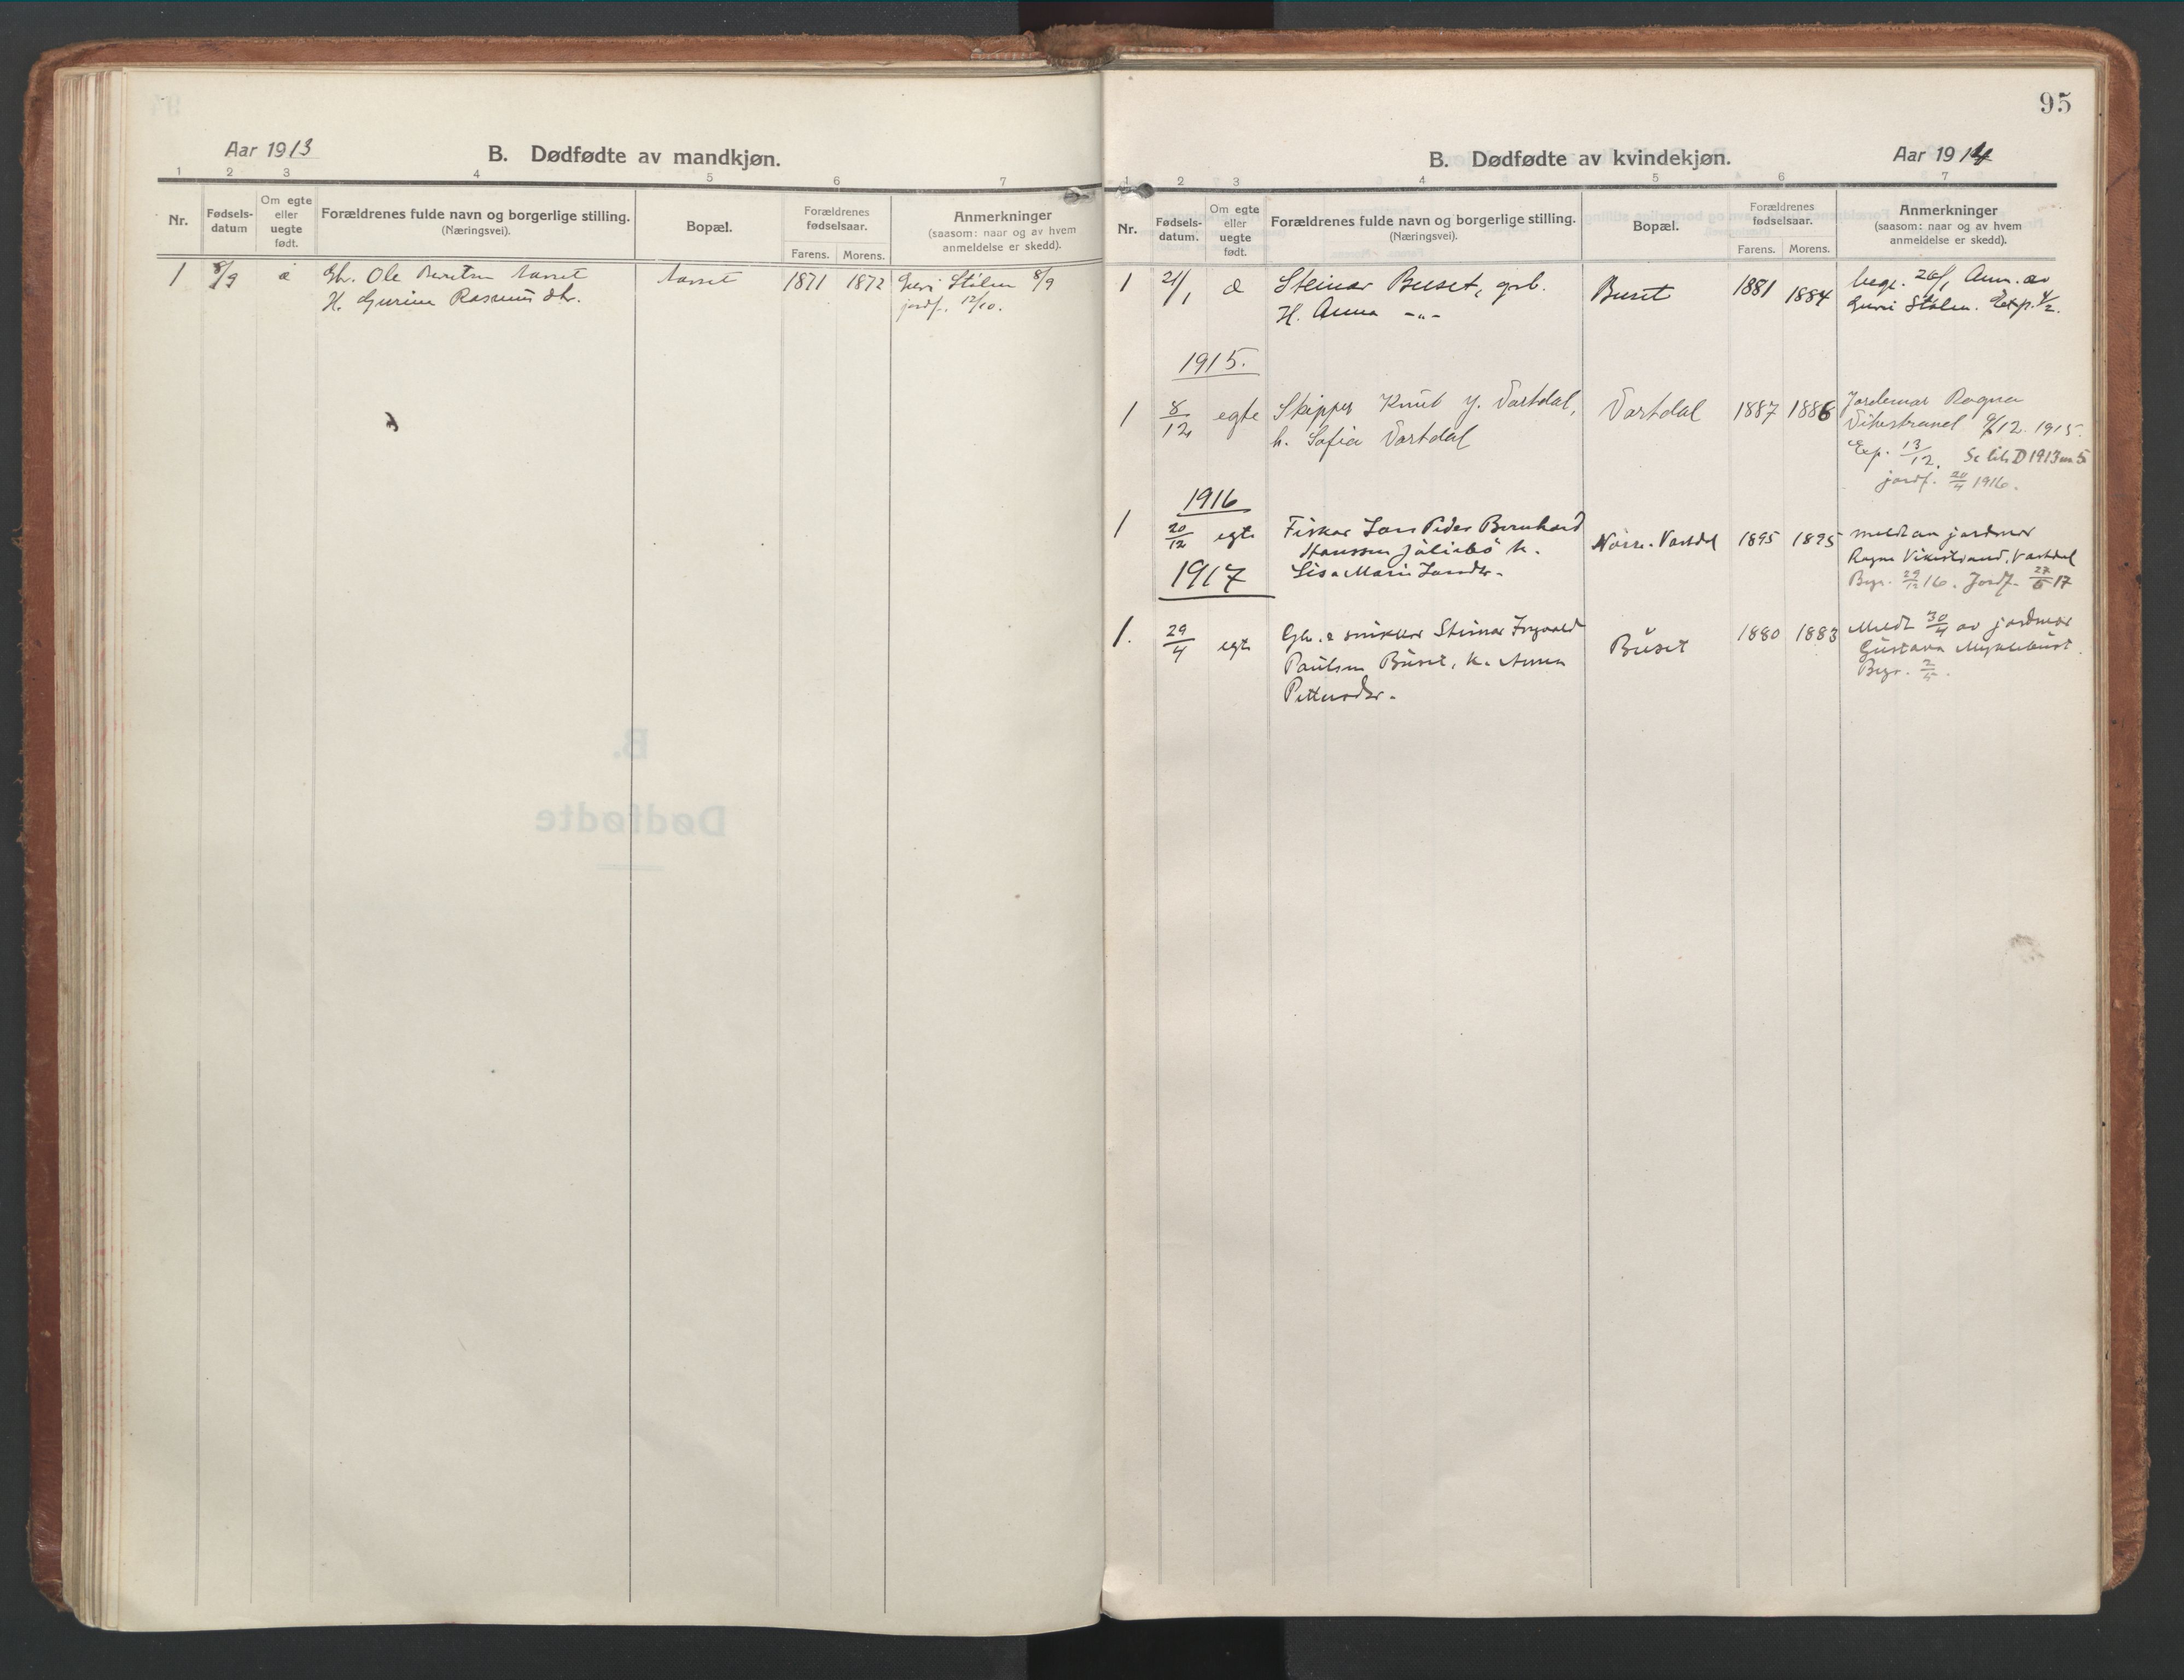 95
Aar 1913
B. Dødfødte av mandkjøn.
1 2 3 4 5 6 7
Nr.
Fødsels-
datum
Om egte
eller
uegte
født.
Forældrenes fulde navn og borgerlige stilling.
(Næringsvei).
Bopæl.
Forældrenes
fødselsaar.
Farens. Morens.
Anmerkninger
(saasom: naar og av hvem
anmeldelse er skedd).
1 8/9 æ Gbr. Ole Aasset Aasset 1871 1872 Guri Stålen 8/9
H. Gurine Rasmusdtr. jordf. 12/10.
B.
Dødfødte
B. Dødfødte av kvindekjøn.
Aar 1914
1 2 3 4 5 6 7
Nr.
Fødsels-
datum.
Om egte
eller
uegte
født.
Forældrenes fulde navn og borgerlige stilling.
(Næringsvei).
Bopæl.
Forældrenes
fødselsaar.
Farens. Morens.
Anmerkninger
(saasom: naar og av hvem
anmeldelse er skedd).
1 21/1 æ Steinar Buset, grb. Buset 1881 1884 begr. 26/1 Anm. av
H. Anna -"- Guri Stålen. Exp. 4/2.
1915.
1 8/12 egte Skipper Knut J. Vartdal, Vartdal 1887 1886 Jordemor Ragna
h. Sofia Vartdal Vikestrand 9/12. 1915.
Exp. 13/12. Se lit. D 1913 nr 5
jordf. 20/4 1916.
1916
1 20/12 egte Fisker Lars Peder Bernhard Nørre-Vartdal 1895 1895 meldt av jordmor
Hanssen h. Ragna Vikestrand, Vartdal
1917 Lisa Marie Larsdtr. Begr. 29/12 16. Jordf. 27/5 17
1. 29/4 egte Gbr. & snikker Steinar Ingvald Buset 1880 1883 Meldt 30/4 av jordmor
Paulsen Buset, h. Anna Gustava Myklebust.
Pettersdtr. Begr. 2/5.